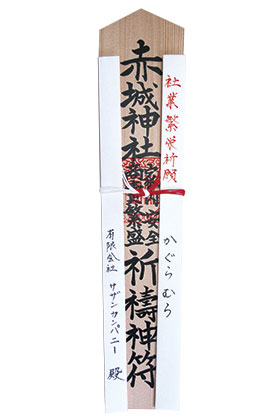 社業繁栄祈願
かぐらむら
赤城神社
安全
繁盛
祈禱神符
有限会社 サザンカンパニー 殿